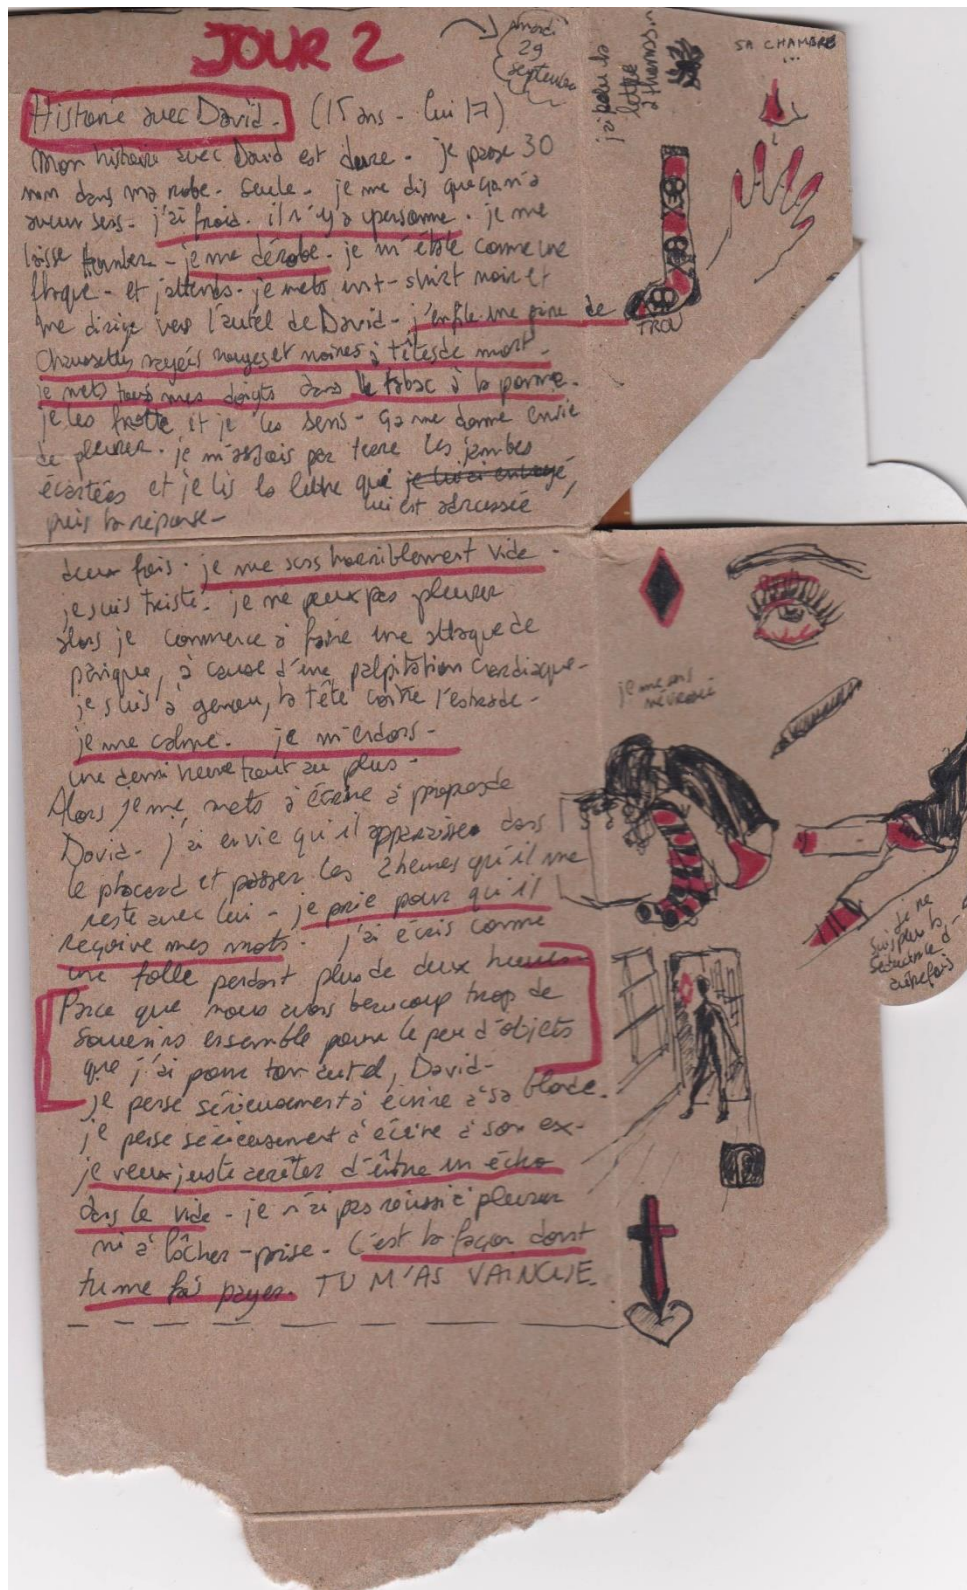 JOUR 2
29
septembre
Histoire avec David. (15 ans - lui 17)
Mon histoire avec David est dure. je passe 30
min dans ma robe. Seule. je me dis que ça n'a
aucun sens. j'ai froid. il n'y a personne. je me
laisse tomber. je me dérobe. je m'étale comme une
flaque. et j'attends. je mets un t-shirt noir et
me dirige vers l'autel de David. j'enfile une paire de
chaussettes rayées rouges et noires à têtes de mort.
je mets tous mes doigts dans le tabac à la pomme.
je les frotte et je les sens. ça me donne envie
de pleurer. je m'assois par terre les jambes
écartées et je lis la lettre que je lui ai envoyé,
lui est adressée
puis la réponse -
deux fois. je me sens horriblement vide.
je suis triste. je ne peux pas pleurer
alors je commence à faire une attaque de
panique, à cause d'une palpitation cardiaque.
je suis à genou, la tête contre l'estrade.
je me calme. je m'endors.
une demi heure tout au plus.
Alors je me mets à écrire à propos de
David. j'ai envie qu'il apparaisse dans
le placard et passer les 2 heures qu'il me
reste avec lui. je prie pour qu'il
reçoive mes mots. j'ai écris comme
une folle pendant plus de deux heures
Parce que nous avons beaucoup trop de
souvenirs ensemble pour le peu d'objets
que j'ai pour ton autel, David.
je pense sérieusement à écrire à sa
je pense sérieusement à écrire à son ex.
je veux juste arrêter d'être un écho
dans le vide. je n'ai pas réussi à pleurer
ni à lâcher-prise. C'est la façon dont
tu me fais payer. TU M'AS VAINCUE.
j'ai perdu la
lettre
SA CHAMBRE
...
TROU
je me sens
névrosée
je ne
suis plus la
séductrice d'
autrefois